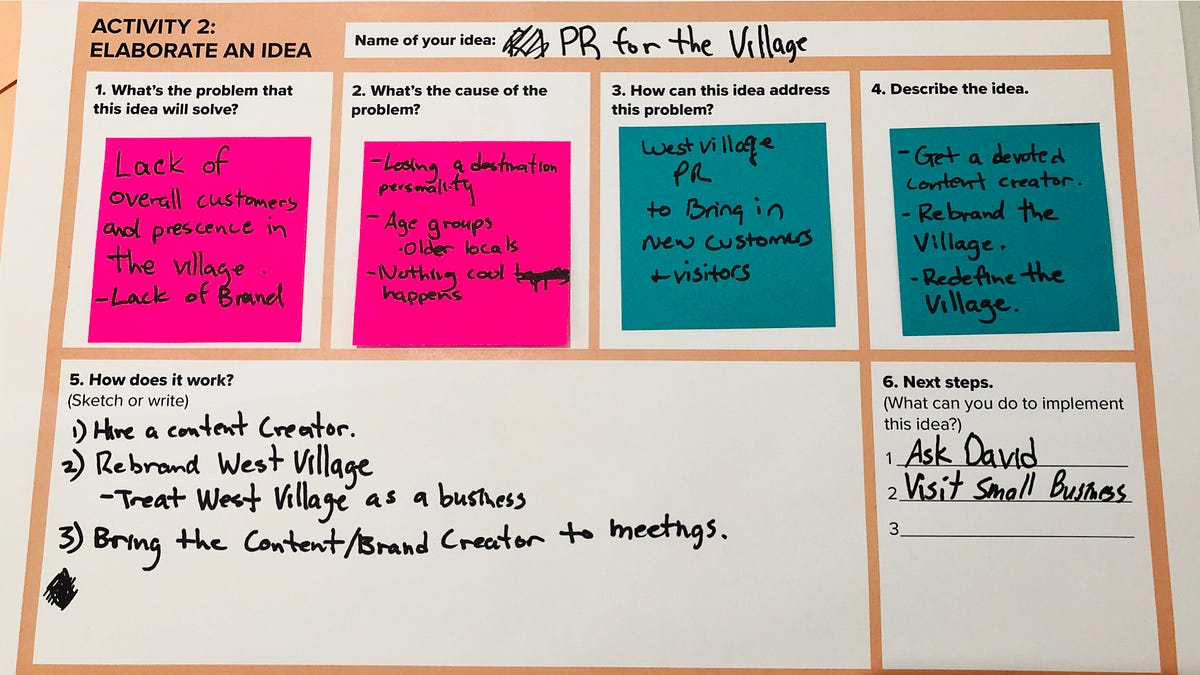 ACTIVITY 2:
ELABORATE AN IDEA
Name of your idea: PR for the Village
1. What's the problem that
this idea will solve?
Lack of
overall customers
and prescence in
the village.
-Lack of Brand
2. What's the cause of the
problem?
-Losing a destination
personality
- Age groups
·Older locals
-Nothing cool
happens
3. How can this idea address
this problem?
West village
PR
to Bring in
new customers
+ visitors
4. Describe the idea.
- Get a devoted
content creator.
- Rebrand the
Village.
-Redefine the
Village.
5. How does it work?
(Sketch or write)
1) Hire a content Creator.
2) Rebrand West Village
-Treat West Village as a business
3) Bring the Content/Brand Creator to meetngs.
6. Next steps.
(What can you do to implement
this idea?)
1 Ask David
2 Visit Small Business
3